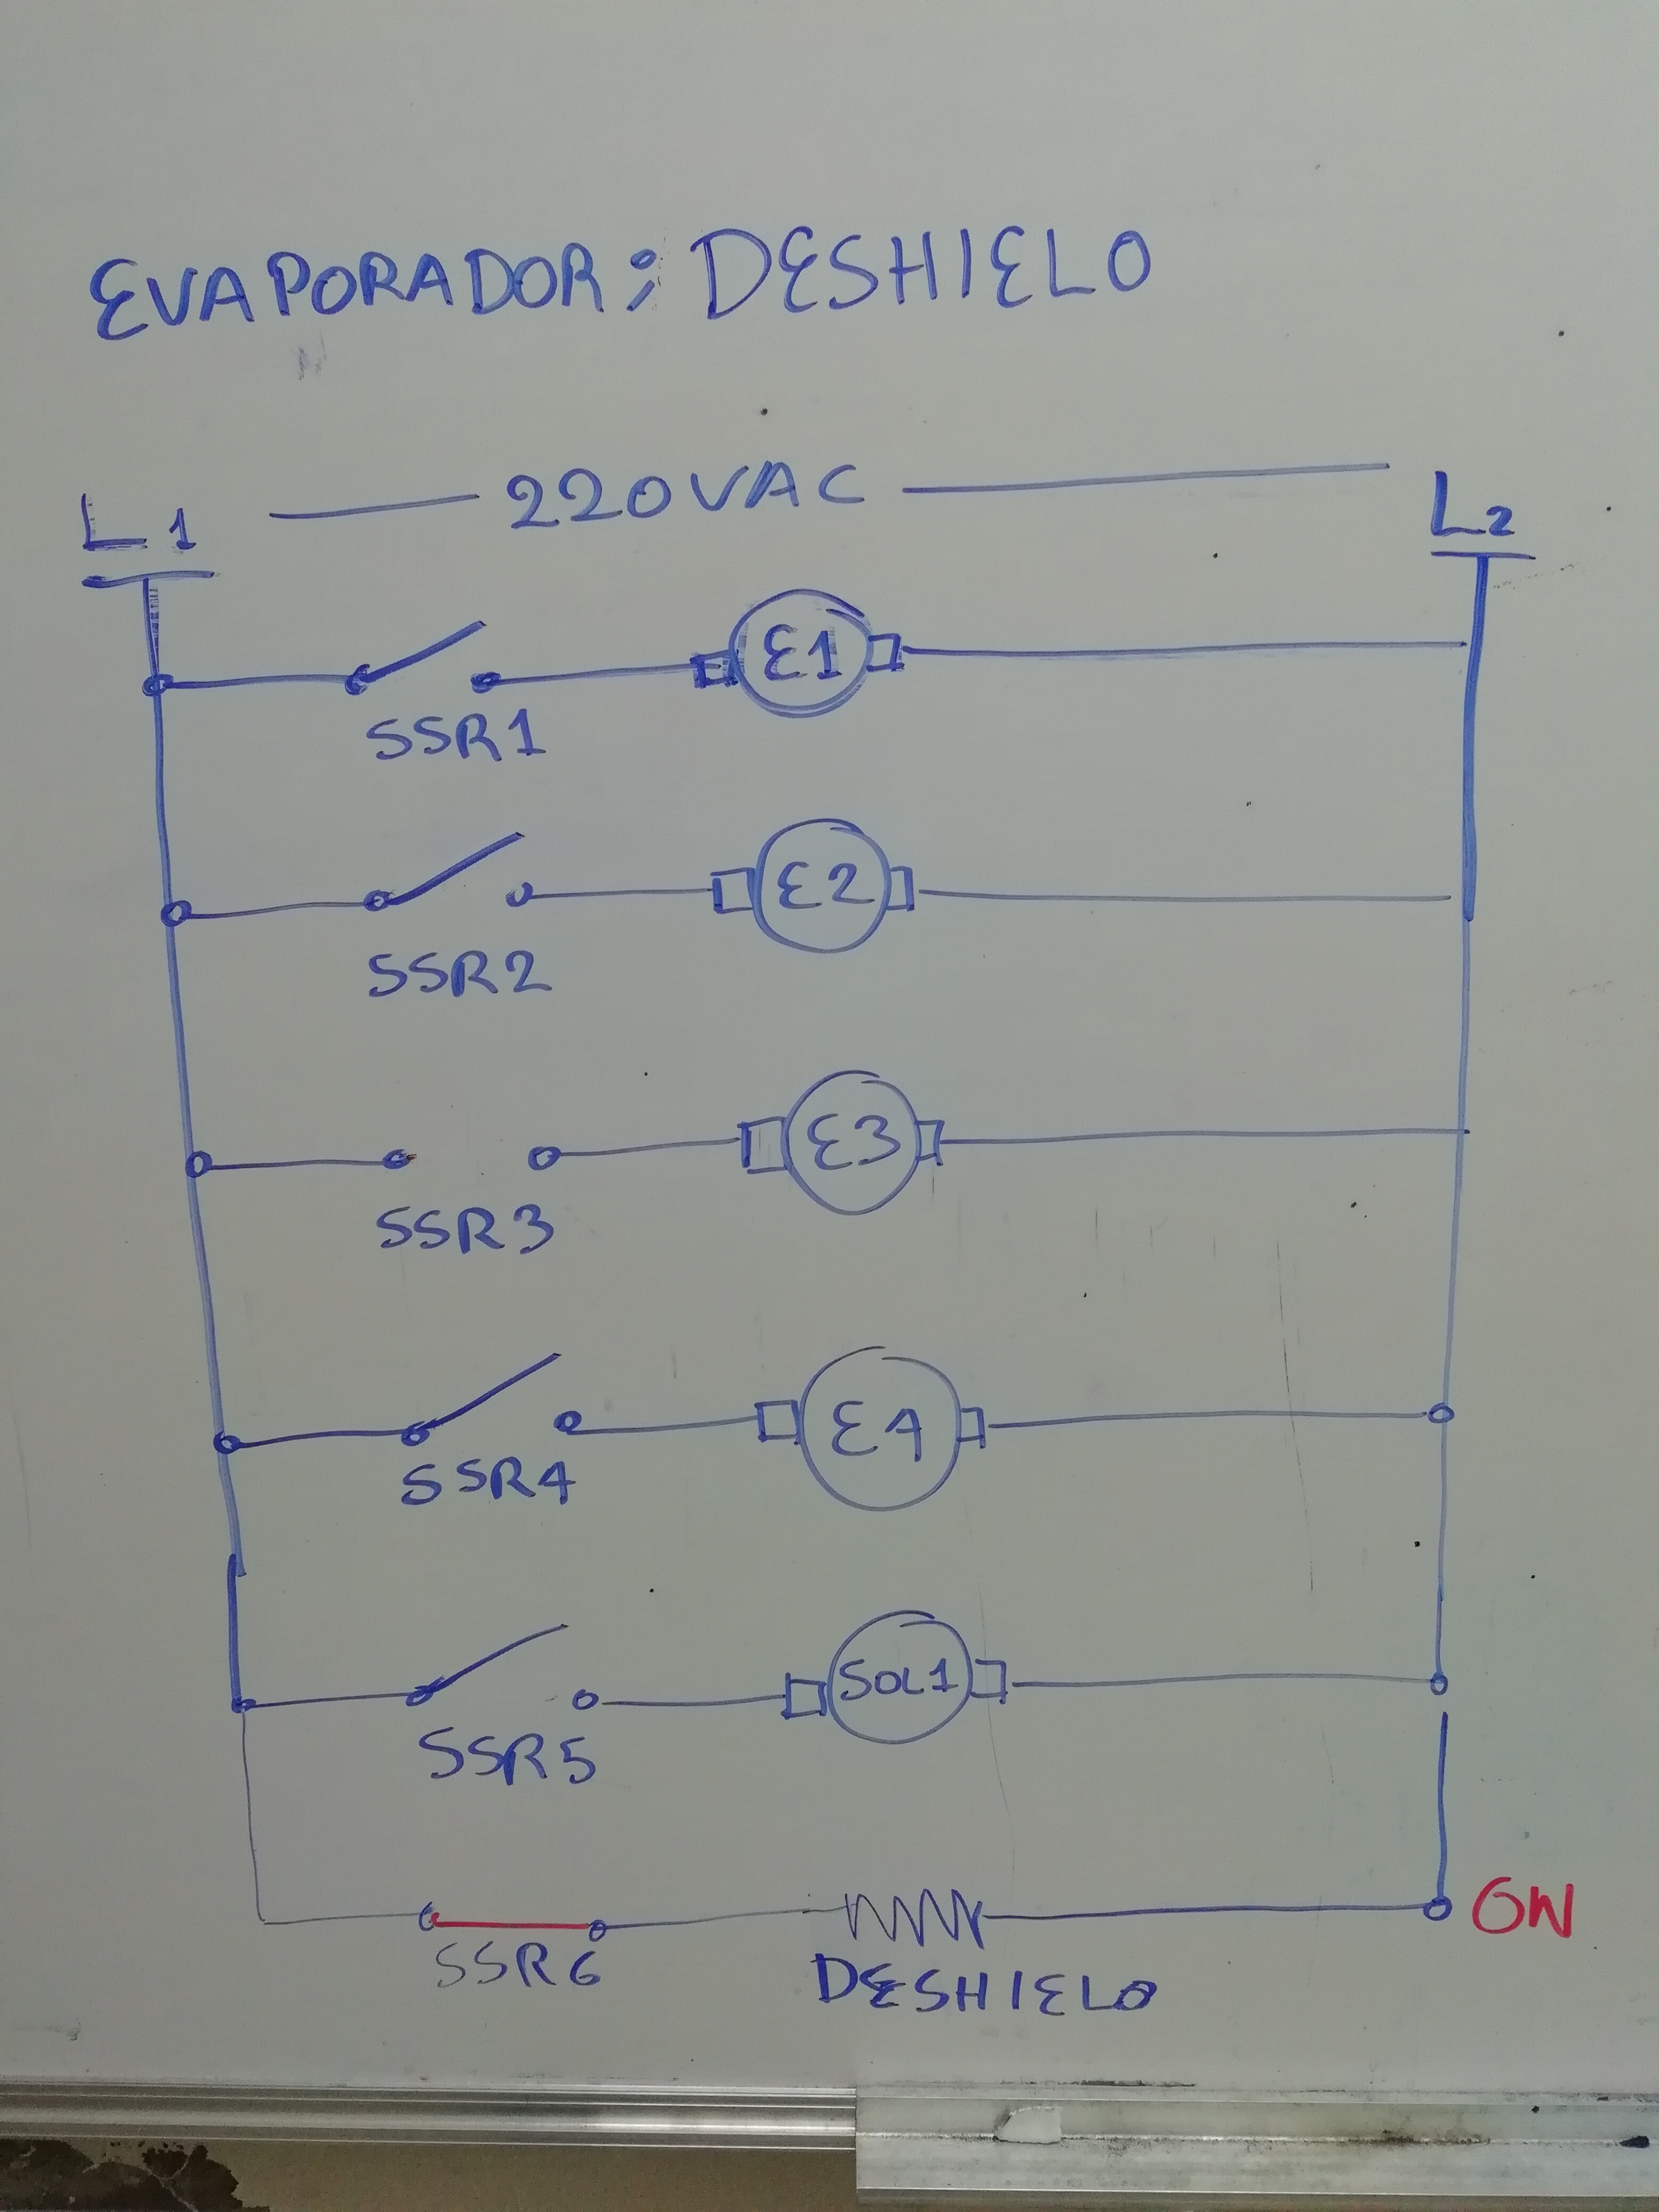 EVAPORADOR: DESHIELO
L1 220VAC L2
E1
SSR1
E2
SSR2
E3
SSR3
E4
SSR4
SOL1
SSR5
ON
SSR6
DESHIELO